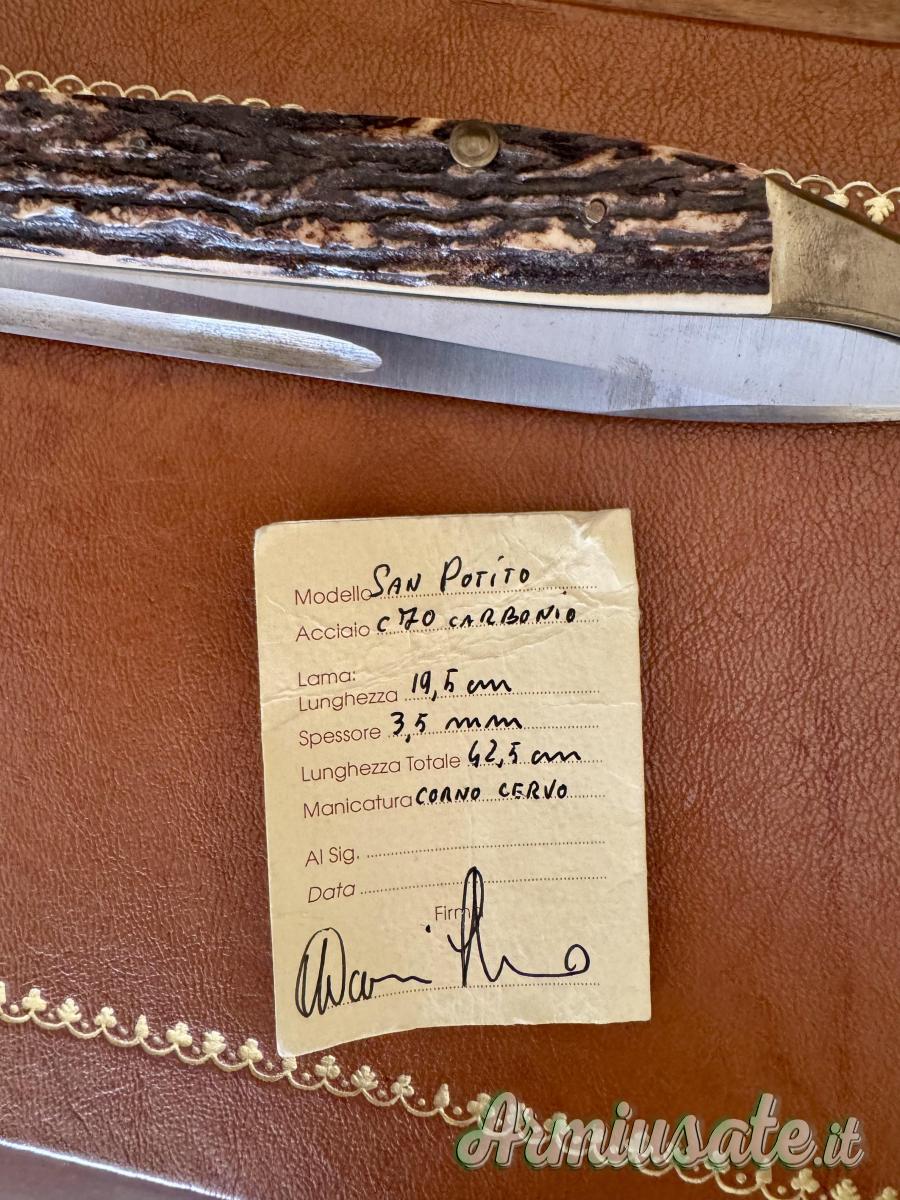 Modello SAN POTITO
Acciaio C70 CARBONIO
Lama:
Lunghezza 19,5 cm
Spessore 3,5 mm
Lunghezza Totale 42,5 cm
Manicatura CORNO CERVO
Al Sig.
Data
Firma
Armiusate.it